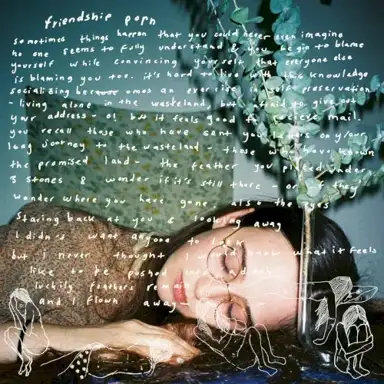 friendship porn
sometimes things happen that you could never even imagine
no one seems to fully understand & you begin to blame
yourself while convincing yourself that everyone else
is blaming you too. it's hard to live with the knowledge
socializing becomes an exercise in self preservation
- living alone in the wasteland but afraid to give out
your address - oh but it feels good to recieve mail.
you recall those who have sent you letters on your
long journey to the wasteland - those who have known
the promised land - the feather you placed under
8 stones & wonder if it's still there - or if they
wonder where you have gone, also the eyes
staring back at you & looking away
I didn't want anyone to look
but i never thought I would know what it feels
like to be pushed into a
luckily feathers remain
and I flown away